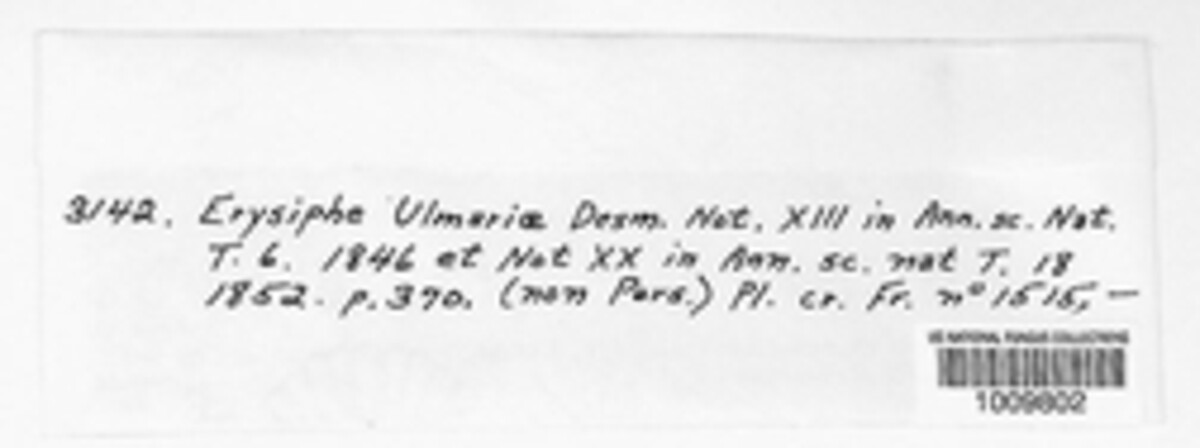 3142. Erysiphe Ulmariæ Desm. Not. XIII in Ann. sc. Nat.
T. 6. 1846 et Not XX in Ann. sc. nat T. 18
1852. p. 370. (non Pers.) Pl. cr. Fr. nº 1515, —
US NATIONAL FUNGUS COLLECTIONS
1009802